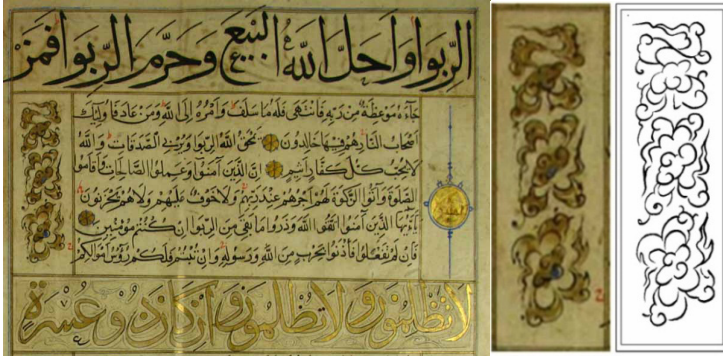 الربوا وأحل الله البيع وحرم الربوا فمن
جاءه موعظة من ربه فانتهى فله ما سلف وأمره إلى الله ومن عاد فأوليك
أصحاب النار هم فيها خالدون يمحق الله الربوا ويربي الصدقات والله
لا يحب كل كفار أثيم إن الذين آمنوا وعملوا الصالحات وأقاموا
الصلوة وآتوا الزكوة لهم أجرهم عند ربهم ولا خوف عليهم ولا هم يحزنون
يأيها الذين آمنوا اتقوا الله وذروا ما بقي من الربوا إن كنتم مؤمنين
فإن لم تفعلوا فأذنوا بحرب من الله ورسوله وإن تبتم فلكم رؤس أموالكم
لا تظلمون ولا تظلمون وإن كان ذو عسرة